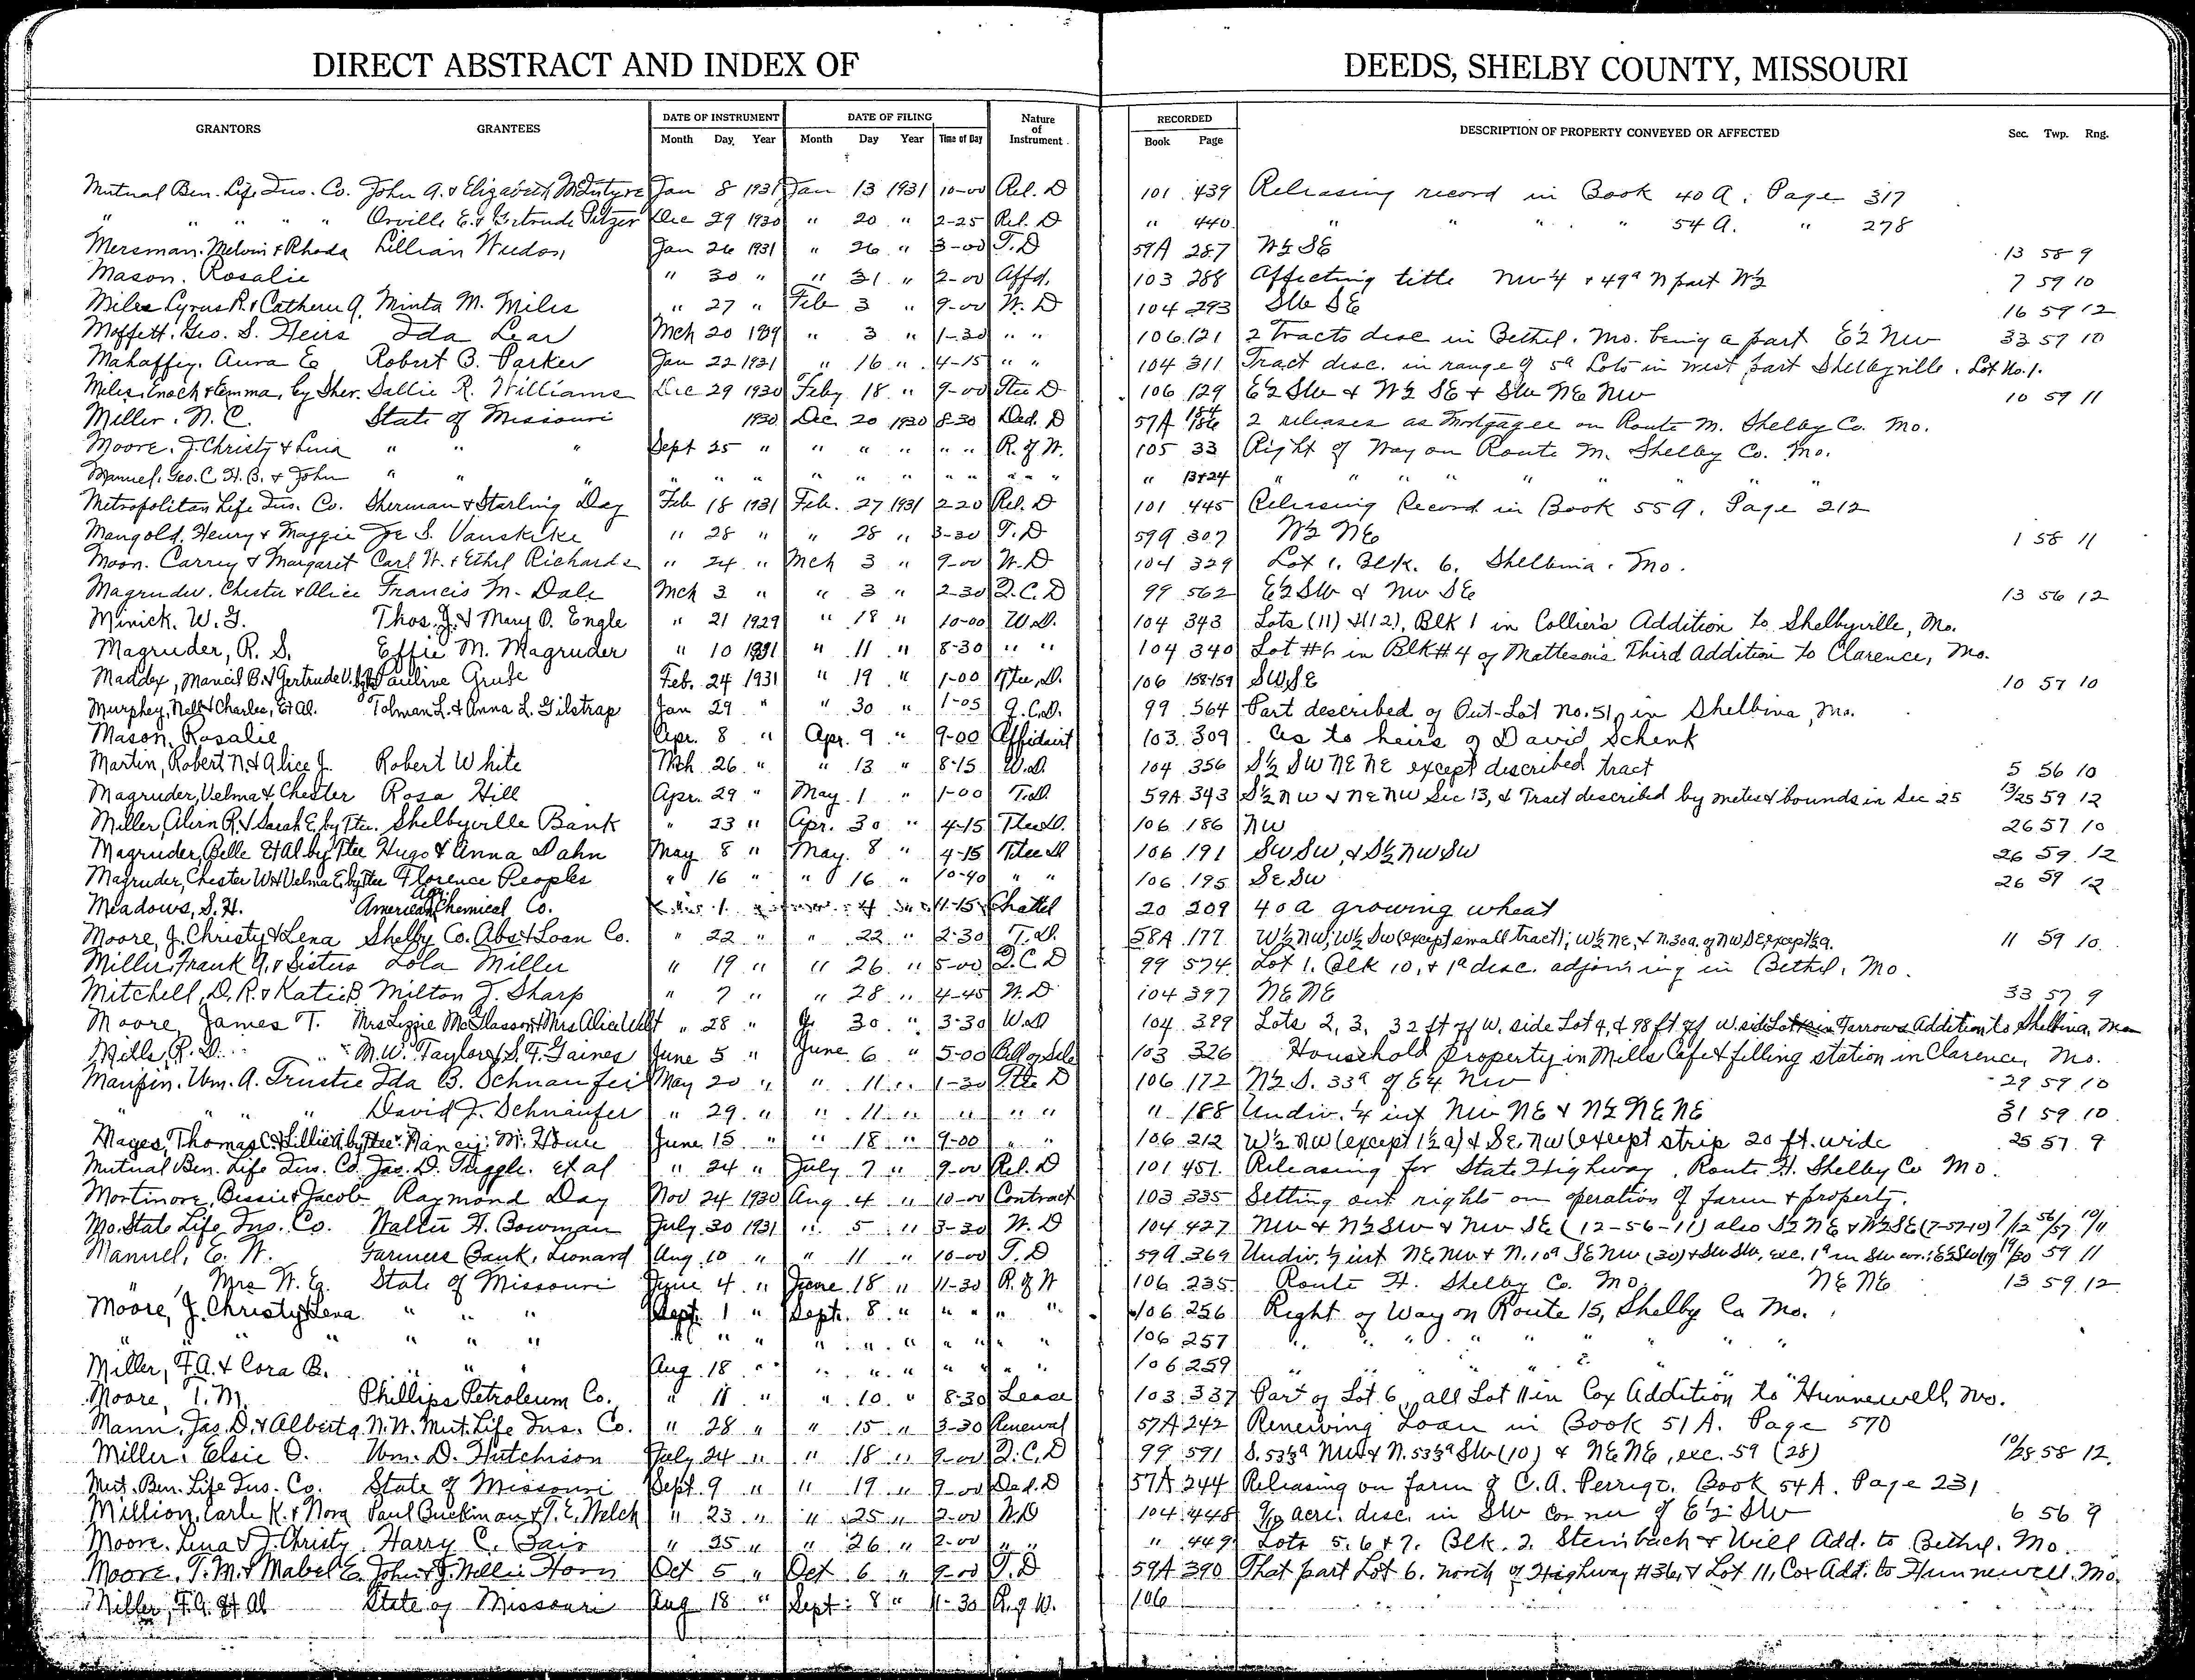 DIRECT ABSTRACT AND INDEX OF DEEDS, SHELBY COUNTY, MISSOURI
GRANTORS GRANTEES DATE OF INSTRUMENT DATE OF FILING Nature of Instrument RECORDED DESCRIPTION OF PROPERTY CONVEYED OR AFFECTED Sec. Twp. Rng.
Month Day Year Month Day Year Time of Day Book Page
Mutual Ben. Life Ins. Co. John A. & Elizabeth McIntyre Jan 8 1931 Jan 13 1931 10-00 Rel. D 101 439 Releasing record in Book 40 A. Page 317
" " " " " Orville E. & Gertrude Pitzer Dec 29 1930 " 20 " 2-25 Rel. D " 440 " " " " 54 A. " 278
Mersman. Melvin & Rhoda Lillian Weedon Jan 26 1931 " 26 " 3-00 T. D 59A 287 W½ SE 13 58 9
Mason. Rosalie " 30 " " 31 " 2-00 Affd. 103 288 Affecting title NW4 & 49a N part W½ 7 59 10
Miles Cyrus R. & Catherine A. Minta M. Miles " 27 " Feb 3 " 9-00 W. D 104 293 SW SE 16 59 12
Moffett. Geo. S. Heirs Ida Lear Mch 20 " 3 " 1-30 " " 106 121 2 tracts desc in Bethel. Mo. being a part E½ NW 33 57 10
Mahaffey. Aura E Robert B. Parker Jan 22 1931 " 16 " 4-15 " " 104 311 Tract desc. in range of 5a Lots in west part Shelbyville. Lot No. 1.
Miles, Enoch & Emma, by Sher. Sallie R. Williams Dec 29 1930 Feby 18 " 9-00 Ttee D 106 129 E½ SW & W½ SE & SW NE NW 10 59 11
Miller. N. C. State of Missouri 1930 Dec. 20 1930 8-30 Ded. D 57A 184 186 2 releases as Mortgagee on Route M. Shelby Co. Mo.
Moore. J. Christy & Lena " " " Sept 25 " " " " " " R. of W. 105 33 Right of Way on Route M. Shelby Co. Mo.
Manuel. Geo. C. H. B. & John " " " " " " " " " " " " " " " 13+24 " " " " " " " "
Metropolitan Life Ins. Co. Sherman & Starling Day Feb 18 1931 Feb. 27 1931 2-20 Rel. D 101 445 Releasing Record in Book 55A. Page 212
Mangold. Henry & Maggie Joe S. Vanskike " 28 " " 28 " 3-30 T. D 59A 307 W½ NE 1 58 11
Moon. Carrey & Margaret Carl W. & Ethel Richards " 24 " Mch 3 " 9-00 W. D 104 329 Lot 1. Blk. 6. Shelbina. Mo.
Magruder. Chester & Alice Francis M. Dale Mch 3 " " 3 " 2-30 Q. C. D 99 562 E½ SW & NW SE 13 56 12
Minick. W. G. Thos. J. & Mary O. Engle " 21 1929 " 18 " 10-00 W. D. 104 343 Lots (11) & (12), Blk 1 in Collier's Addition to Shelbyville, Mo.
Magruder, R. S. Effie M. Magruder " 10 1931 " 11 " 8-30 " " 104 340 Lot #6 in Blk #4 of Matteson's Third Addition to Clarence, Mo.
Maddex, Mancil B. & Gertrude V. by Pauline Grube Feb. 24 1931 " 19 " 1-00 Ttee, D. 106 158-159 SWSE 10 57 10
Murphey, Nell & Charles, Et Al. Tolman L. & Anna L. Gilstrap Jan 29 " " 30 " 1-05 Q. C. D. 99 564 Part described of Out-Lot No. 51, in Shelbina, Mo.
Mason, Rosalie Apr. 8 " Apr. 9 " 9-00 Affidavit 103 309 As to heirs of David Schenk
Martin, Robert N. & Alice J. Robert White Mch 26 " " 13 " 8-15 W. D. 104 356 S½ SW NE NE except described tract 5 56 10
Magruder, Velma & Chester Rosa Hill Apr. 29 " May 1 " 1-00 T. D. 59A 343 S½ NW & NE NW Sec 13, & Tract described by metes & bounds in Sec 25 13/25 59 12
Miller, Alvin R. & Sarah E, by Ttee. Shelbyville Bank " 23 " Apr. 30 " 4-15 Ttee D. 106 186 NW 26 57 10
Magruder, Belle Et Al by Ttee Hugo & Anna Dahn May 8 " May 8 " 4-15 Ttee D 106 191 SW SW, & S½ NW SW 26 59 12
Magruder, Chester W & Velma E, by Ttee Florence Peoples " 16 " " 16 " 10-40 " " 106 195 SE SW 26 59 12
Meadows, S. H. American Agri Chemical Co. 1 4 11-15 Chattel 20 209 40 a growing wheat
Moore, J. Christy & Lena Shelby Co. Abst & Loan Co. " 22 " " 22 " 2-30 T. D. 58A 177 W½ NW; W½ SW (except small tract); W½ NE, & N. 30a. of NW SE except 2a. 11 59 10
Miller, Frank A. & Sisters Lola Miller " 19 " " 26 " 5-00 Q. C. D 99 574 Lot 1. Blk 10, & 1a desc. adjoining in Bethel. Mo.
Mitchell, D. R. & Katie B. Milton J. Sharp " 7 " " 28 " 4-45 W. D 104 397 NE NE 33 57 9
Moore, James T. Mrs Lizzie McGlasson & Mrs Alice Wilt " 28 " 30 " 3-30 W. D 104 399 Lots 2, 3, 32 ft off W. side Lot 4, & 98 ft off W. side Farrows Addition to Shelbina, Mo
Mills, R. D. M. W. Taylor & S. F. Gaines June 5 " June 6 " 5-00 Bill of Sale 103 326 Household property in Mills Cafe & filling station in Clarence, Mo.
Maupin. Wm. A. Trustee Ida B. Schnaufer May 20 " " 11 " 1-30 Ttee D 106 172 N½ S. 33a of E½ NW 29 59 10
" " " " David J. Schnaufer " 29 " " 11 " " " " " 188 Undiv. ¼ int NW NE & N½ NE NE 31 59 10
Mayes, Thomas C. & Lillie A by Ttee Nancy M. June 15 " " 18 " 9-00 " " 106 212 W½ NW (except 1½ a) & SE NW (except strip 20 ft. wide 25 57 9
Mutual Ben. Life Ins. Co. Jas. D. Tuggle. et al " 24 " July 7 " 9-00 Rel. D 101 451 Releasing for State Highway. Route H. Shelby Co Mo.
Mortimore, Bessie & Jacob Raymond Day Nov 24 1930 Aug 4 " 10-00 Contract 103 335 Setting out rights on operation of farm & property.
Mo. State Life Ins. Co. Walter H. Bowman July 30 1931 " 5 " 3-30 W. D 104 427 NW & N½ SW & NW SE (12-56-11) also S½ NE & N½ SE (7-57-10) 7/12 56/57 10/11
Manuel, E. W. Farmers Bank, Leonard Aug 10 " " 11 " 10-00 T. D 59A 369 Undiv. ½ int NE NW & N. 10a SE NW (30) & SW SW, exc. 1a in SW cor.; E½ SW (19) 19/30 59 11
" , Mrs W. E. State of Missouri June 4 " June 18 " 11-30 R. of W 106 235 Route H. Shelby Co. Mo. NE NE 13 59 12
Moore, J. Christy & Lena " " " Sept. 1 " Sept. 8 " " " " " 106 256 Right of Way on Route 15, Shelby Co Mo.
" " " " " " " " " " " " " " " " 106 257 " " " " " " " "
Miller, F. A. & Cora B. " " " Aug 18 " " " " " " " " 106 259 " " " " " " "
Moore, T. M. Phillips Petroleum Co. " 11 " " 10 " 8-30 Lease 103 337 Part of Lot 6, all Lot 11 in Cox Addition to Hunnewell, Mo.
Mann, Jas. D. & Alberta N. W. Mut. Life Ins. Co. " 28 " " 15 " 3-30 Renewal 57A 242 Renewing Loan in Book 51 A. Page 570
Miller. Elsie O. Wm. D. Hutchison July 24 " " 18 " 9-00 Q. C. D 99 591 S. 53⅓a NW & N. 53⅓a SW (10) & NE NE, exc. 5a (28) 10/28 58 12
Mut. Ben. Life Ins. Co. State of Missouri Sept. 9 " " 19 " 9-00 Ded. D 57A 244 Releasing on farm of C. A. Perrigo. Book 54 A. Page 231
Million, Earle K. & Nora Paul Buckman & T. E. Welch " 23 " " 25 " 2-00 W. D 104 448 9/10 acre. desc. in SW corner of E½ SW 6 56 9
Moore. Lena & J. Christy. Harry C. Bair " 25 " " 26 " 2-00 " " " 449 Lots 5. 6 & 7. Blk. 2. Steinbach & Will Add. to Bethel. Mo.
Moore. T. M. & Mabel E. John & J. Nellie Horn Oct 5 " Oct 6 " 9-00 T. D 59A 390 That part Lot 6. north of Highway #36, & Lot 11, Cox Add. to Hunnewell. Mo.
Miller, F. A. Et Al State of Missouri Aug 18 " Sept. 8 " 11-30 R. of W. 106